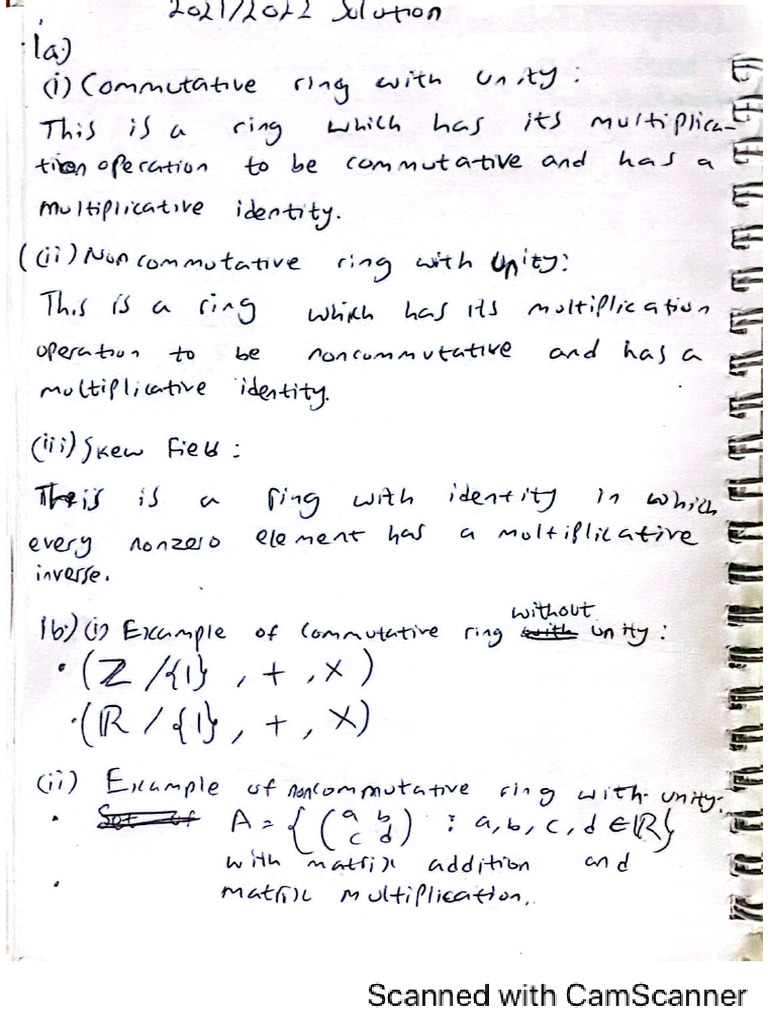 2021/2022 Solution
1a)
(i) Commutative ring with unity:
This is a ring which has its multiplica-
tion operation to be commutative and has a
multiplicative identity.
(ii) Noncommutative ring with unity:
This is a ring which has its multiplication
operation to be noncommutative and has a
multiplicative identity.
(iii) Skew Field:
This is a ring with identity in which
every nonzero element has a multiplicative
inverse.
1b) (i) Example of commutative ring without unity:
• (ℤ /{1} , + , ×)
• (ℝ / {1} , + , ×)
(ii) Example of noncommutative ring with unity:
• A = { (a b
c d) : a, b, c, d ∈ ℝ}
with matrix addition and
matrix multiplication.
Scanned with CamScanner